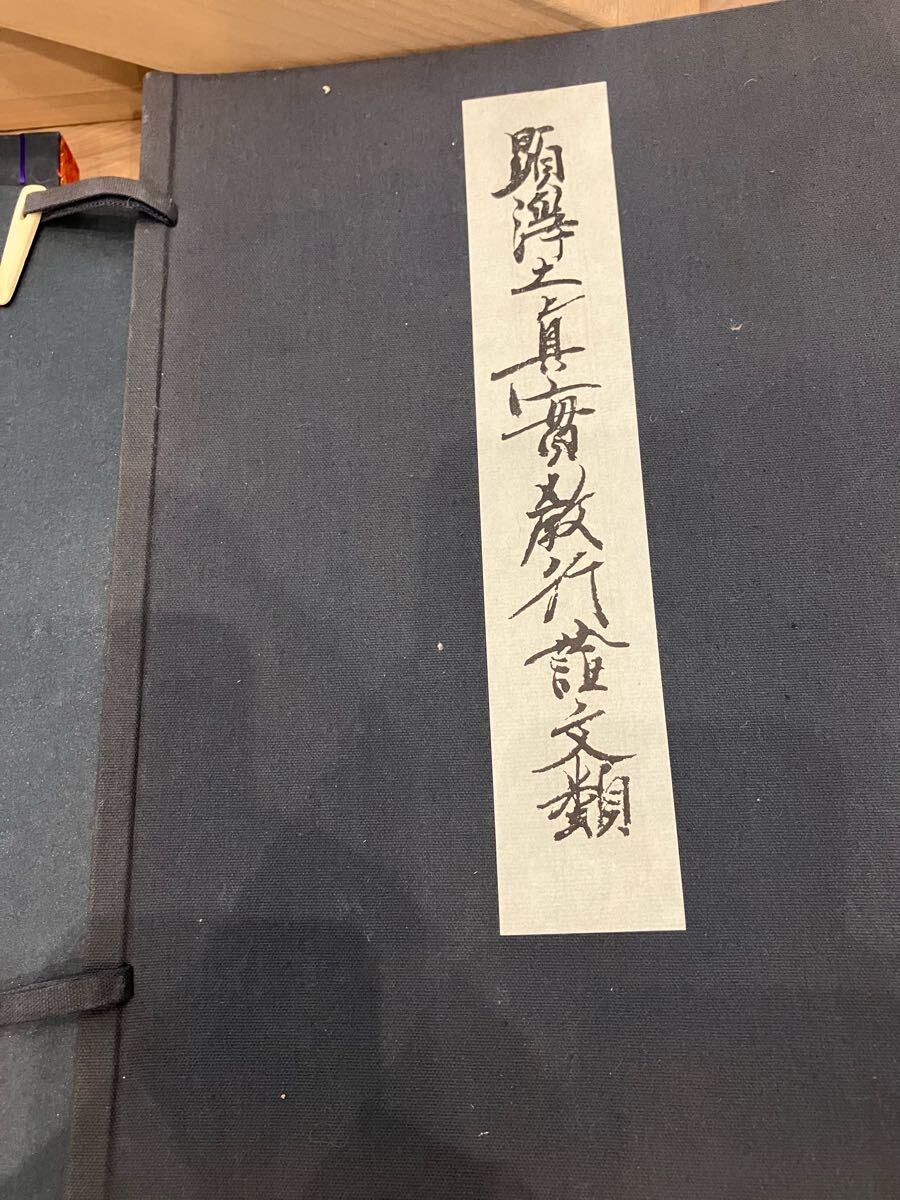 顕浄土真實教行證文類